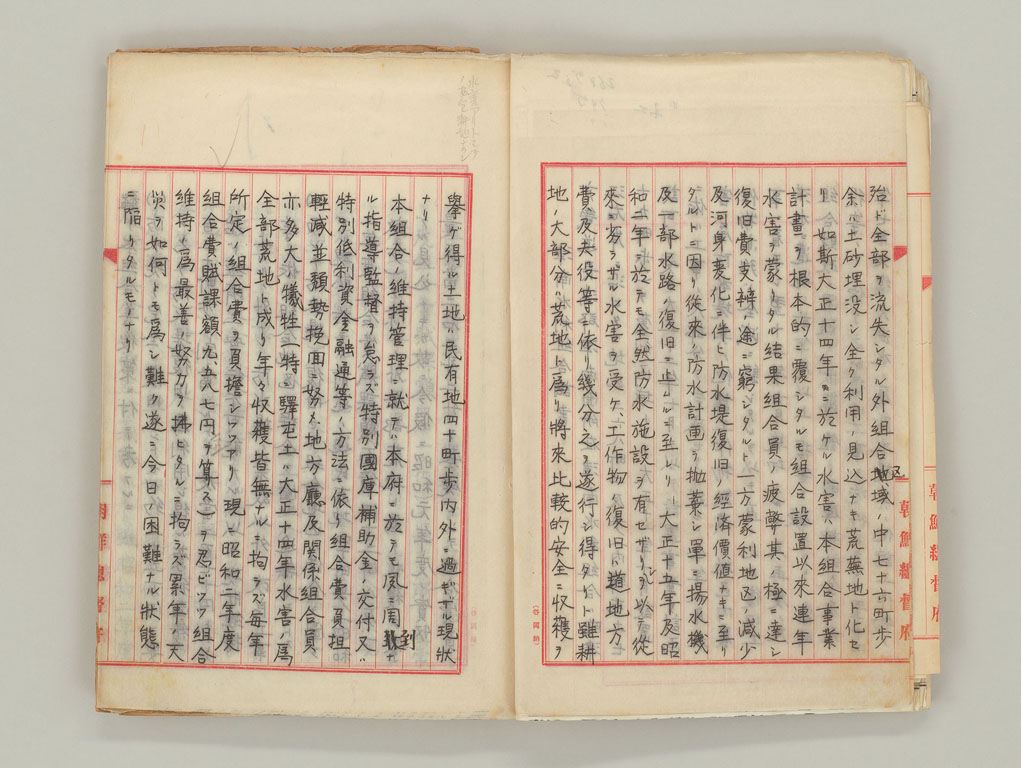 殆ド全部ヲ流失シタル外組合区域ノ中七十六町歩
余ハ土砂埋没シ全ク利用ノ見込ナキ荒蕪地ト化セ
リ如斯大正十四年ニ於ケル水害ハ本組合事業
計畫ヲ根本的ニ覆シタルモ組合設置以來連年
水害ヲ蒙リタル結果組合員ノ疲弊其ノ極ニ達シ
復旧費支辨ノ途ニ窮シタルト一方蒙利地区ノ減少
及河身変化ニ伴ヒ防水堤復旧ノ経済價値ナキニ至リ
タルトニ因リ從來ノ防水計画ヲ抛棄シ單ニ揚水機
及一部水路ノ復旧ニ止ムルニ至レリ大正十五年及昭
和二年ニ於テモ全然防水施設ヲ有セザリシヲ以テ從
來ニ劣ラザル水害ヲ受ケ工作物ノ復旧ハ道地方
費及夫役等ニ依リ幾分之ヲ遂行シ得タリト雖耕
地ノ大部分ハ荒地ト為リ將來比較的安全ニ収穫ヲ
朝鮮總督府
朝鮮總督府
擧ゲ得ル土地ハ民有地四十町歩内外ニ過ギザル現狀
ナリ
本組合ノ維持管理ニ就テハ本府ニ於テモ夙ニ周到ナ
ル指導監督ヲ怠ラズ特別國庫補助金ノ交付又ハ
特別低利資金融通等ノ方法ニ依リ組合費負担
輕減並頽勢挽回ニ努メ地方廳及関係組合員
亦多大ノ犠牲(特ニ驛屯土ハ大正十四年水害ノ為
全部荒地ト成リ年々収穫皆無ナルニ拘ラズ毎年
所定ノ組合費ヲ負擔シツツアリ現ニ昭和二年度
組合費賦課額九、五八七円ヲ算ス)ヲ忍ビツツ組合
維持ノ為最善ノ努力ヲ拂ヒタルニ拘ラズ累年ノ天
災ヲ如何トモ為シ難ク遂ニ今日ノ困難ナル狀態
ニ陥リタルモノナリ
朝鮮總督府